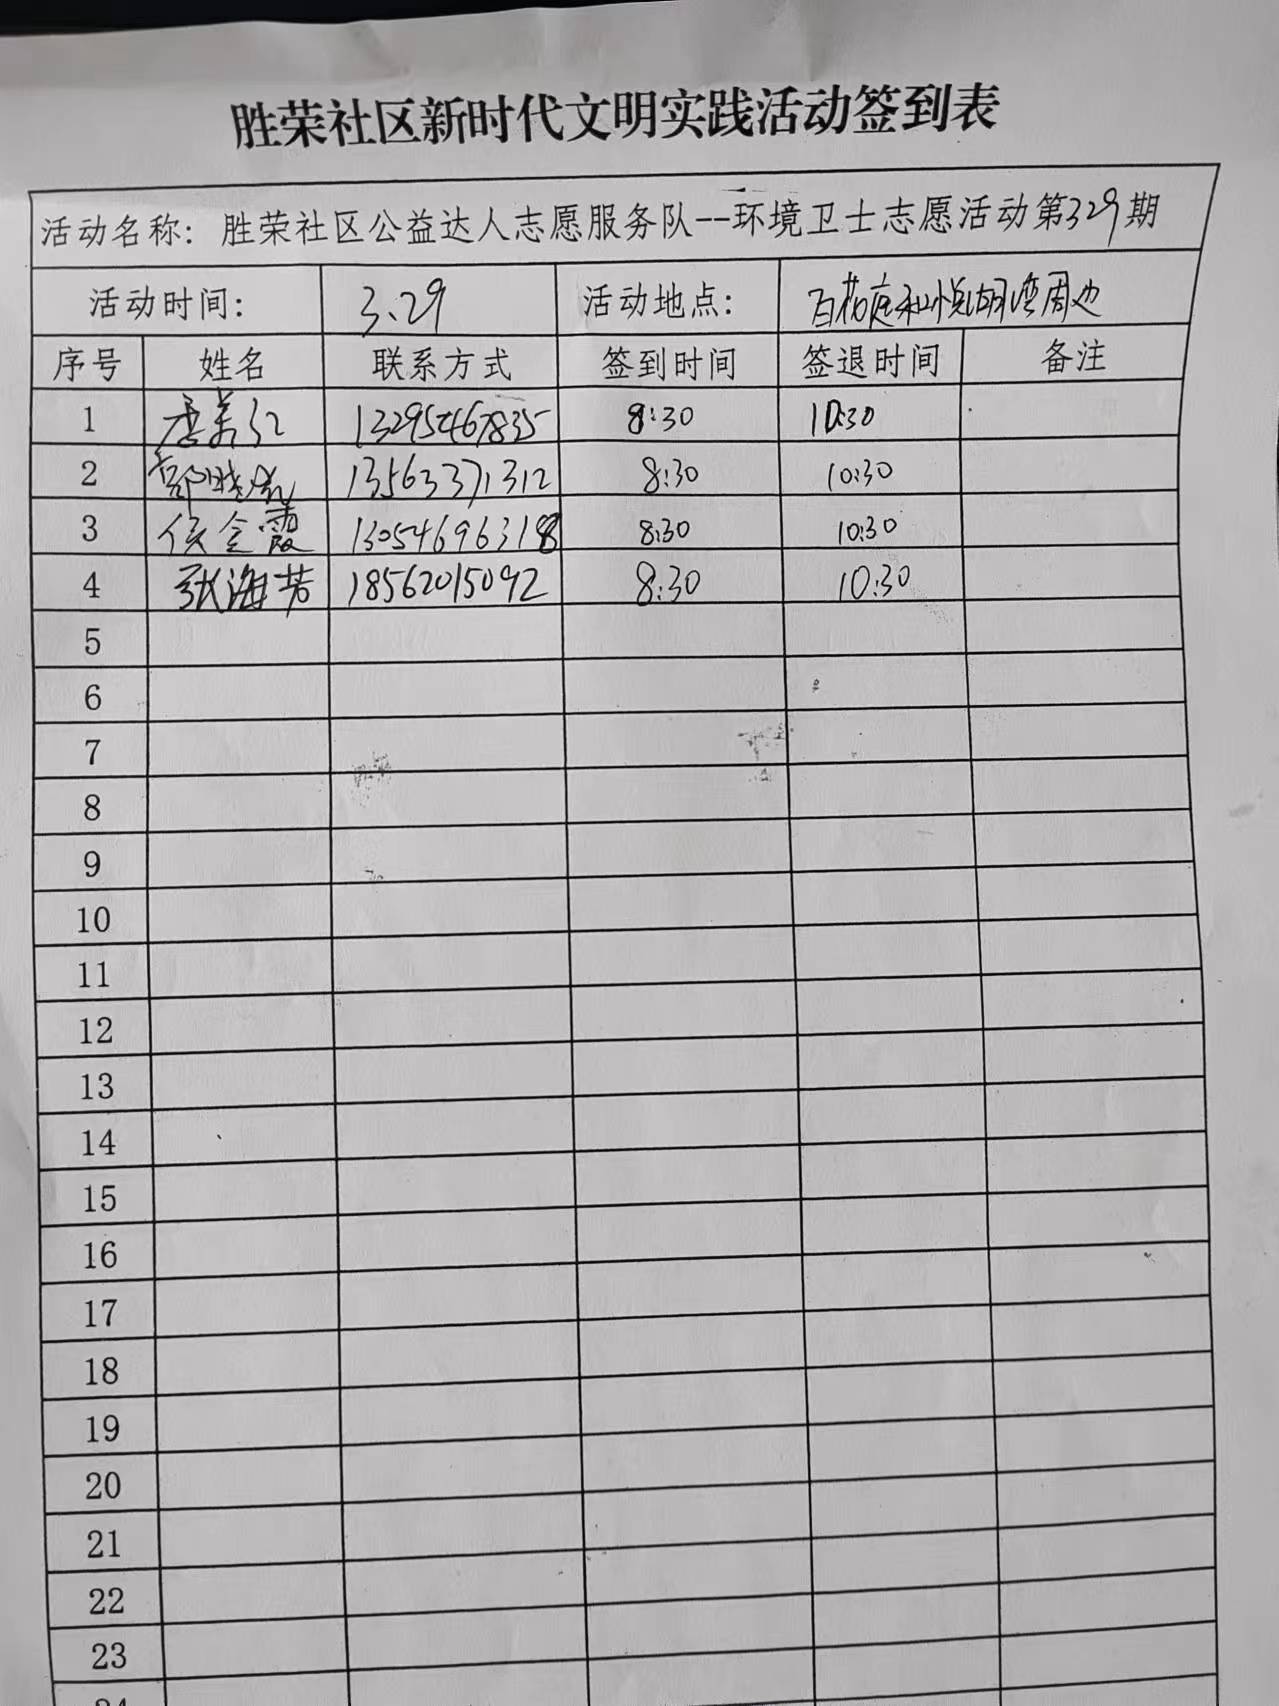 胜荣社区新时代文明实践活动签到表
活动名称：胜荣社区公益达人志愿服务队--环境卫士志愿活动第329期
活动时间： 3.29 活动地点： 百花庭和悦湖湾周边
序号 姓名 联系方式 签到时间 签退时间 备注
1 13295467835 8:30 10:30
2 13563371312 8:30 10:30
3 霞 13054696318 8:30 10:30
4 张海芳 18562015092 8:30 10:30
5
6
7
8
9
10
11
12
13
14
15
16
17
18
19
20
21
22
23
24